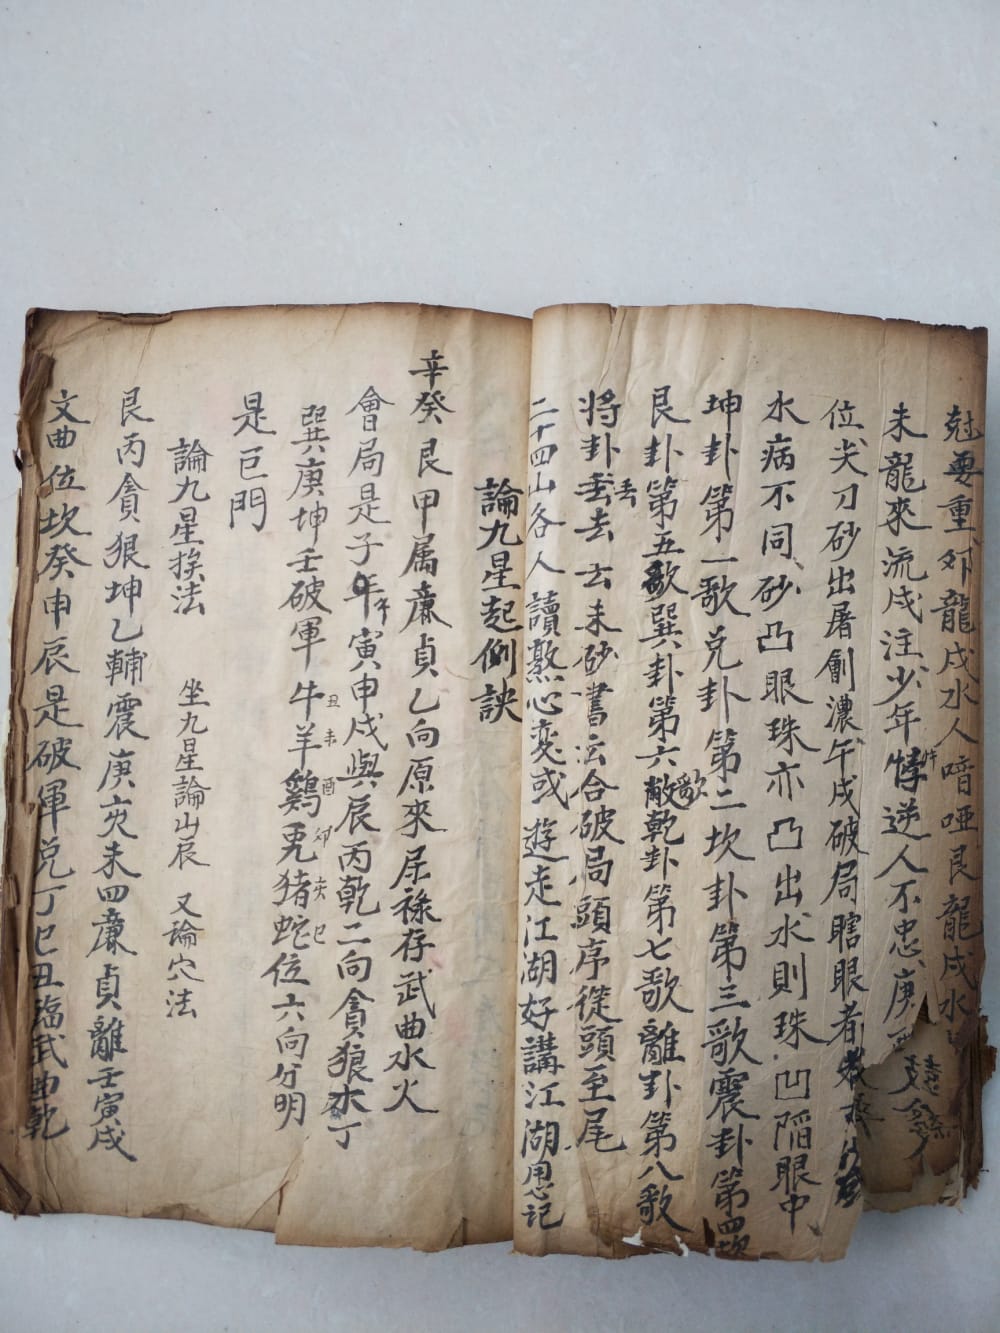 尅要重卯龍戌水人喑啞艮龍戌水
未龍來流戌注少年悖逆人不忠庚
位尖刀砂出屠劊濃午戌破局瞎眼者
水病不同砂凸眼珠亦凸出水則珠凹陷眼中
坤卦第一歌兌卦第二坎卦第三歌震卦第四歌
艮卦第五歌巽卦第六歌乾卦第七歌離卦第八歌
將卦丢去去未砂書云合破局頭序從頭至尾
二十四山各人讀熟心変或遊走江湖好講江湖思记
論九星起例訣
辛癸艮甲属廉貞乙向原來是祿存武曲水火
會局是子午寅申戌與辰丙乾二向貪狼木丁
巽庚坤壬破軍牛丑羊未鷄酉兎卯猪亥蛇巳位六向分明
是巨門
論九星挨法 坐九星論山辰 又論穴法
艮丙貪狼坤乙輔震庚亥未四廉貞離壬寅戌
文曲位坎癸申辰是破軍兌丁巳丑臨武曲乾